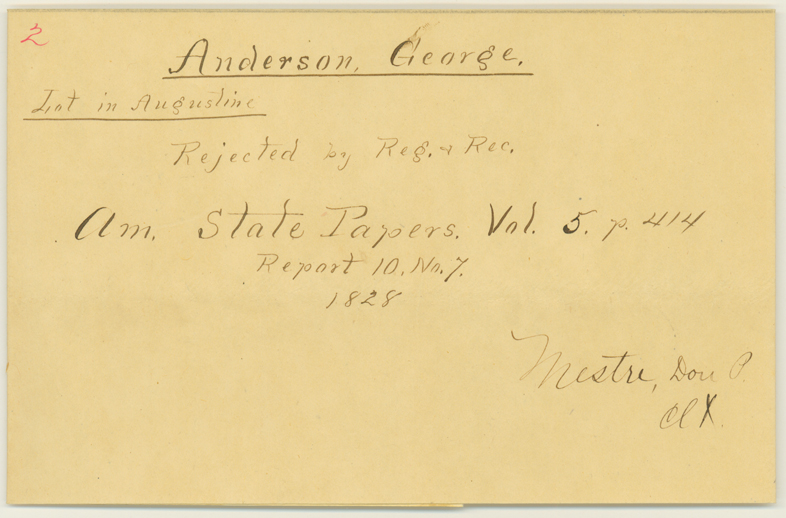 2
Anderson, George.
Lot in Augustine
Rejected by Reg. & Rec.
Am. State Papers. Vol. 5. p. 414
Report 10. No. 7.
1828
Mestre, Don P.
Cl X.